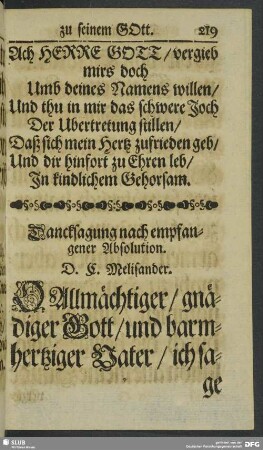 zu seinem GOtt. 219
Ach HERRE GOTT / vergieb
mirs doch
Umb deines Namens willen /
Und thu in mir das schwere Joch
Der Ubertretung stillen /
Daß sich mein Hertz zufrieden geb /
Und dir hinfort zu Ehren leb /
In kindlichem Gehorsam.
Dancksagung nach empfan-
gener Absolution.
D. C. Melisander.
O Allmächtiger / gnä-
diger Gott / und barm-
hertziger Vater / ich sa-
ge
SLUB
DFG